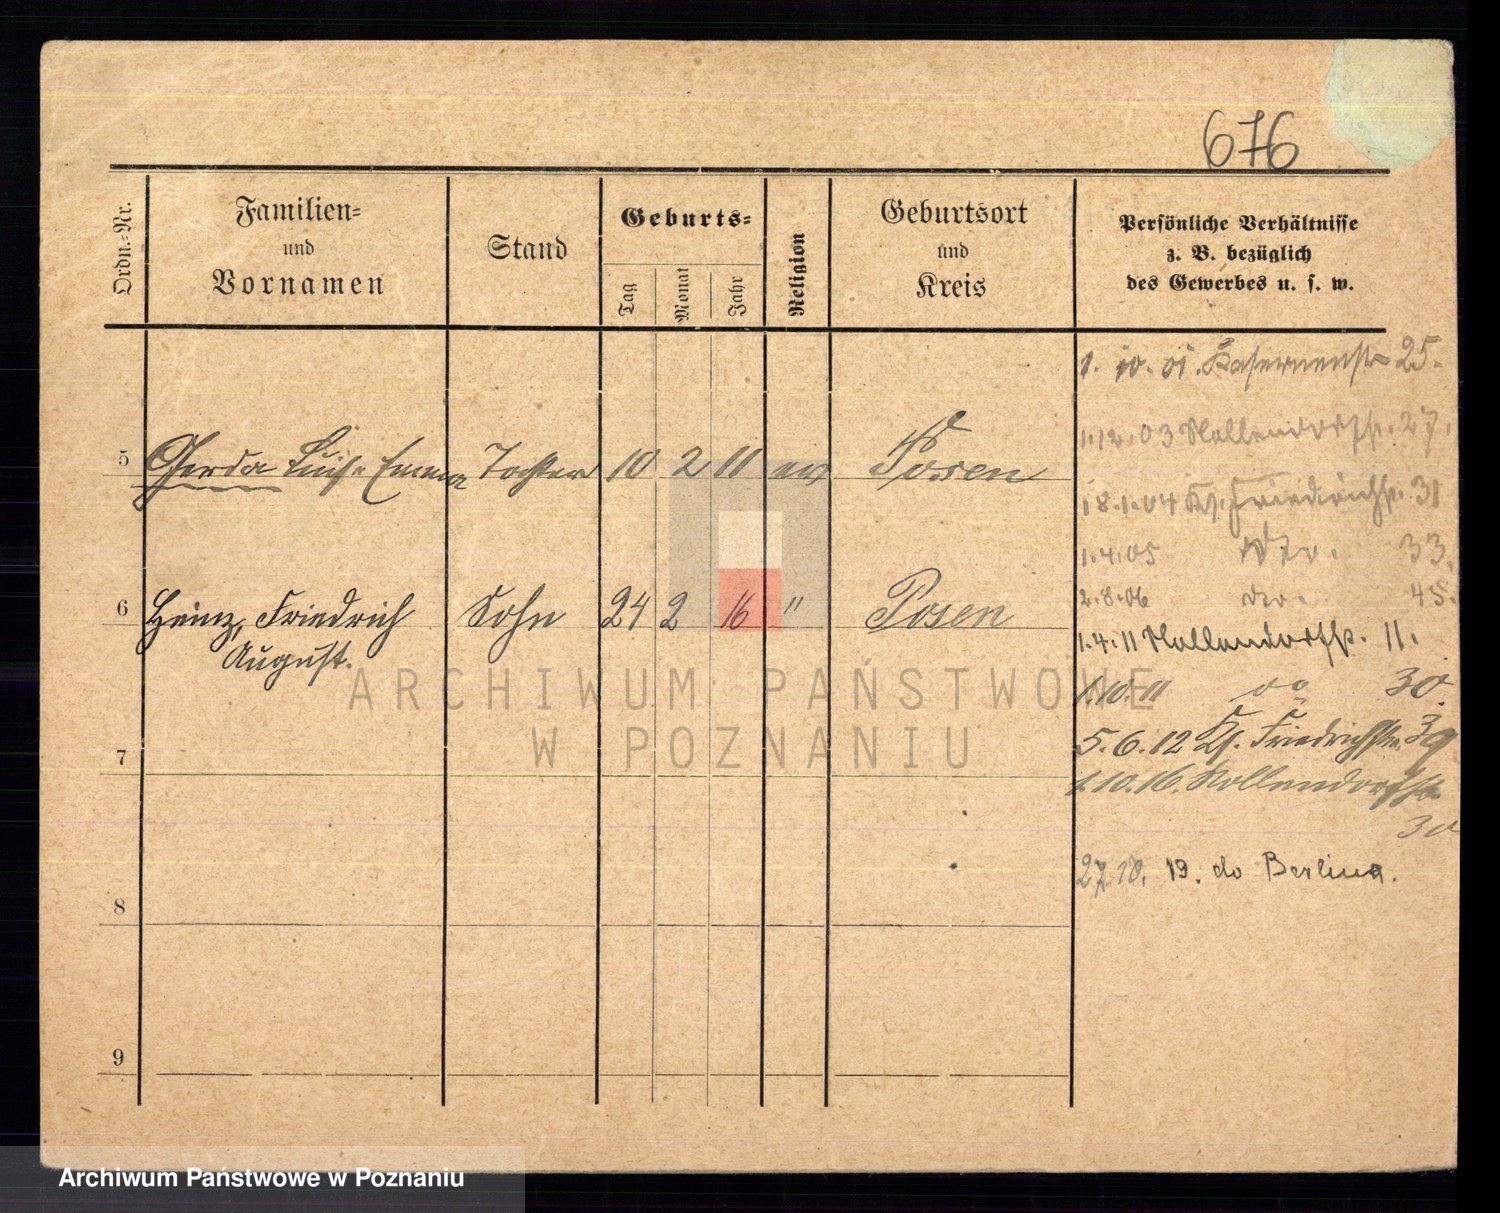 676
Ordn.-Nr.
Familien-
und
Vornamen
Stand
Geburts-
Tag
Monat
Jahr
Religion
Geburtsort
und
Kreis
Persönliche Verhältnisse
z. B. bezüglich
des Gewerbes u. s. w.
1. 10. 01. Kasernenstr 25.
1.12.03 Nollendorfstr. 27.
5 Gerda Luise Emma Tochter 10 2 11 ev Posen
18.1.04 Kl. Friedrichstr. 31
1.4.05 33.
2.8.06 do. 45.
6 Heinz, Friedrich Sohn 24 2 16 " Posen
August.
1.4.11 Nollendorfstr. 11.
1.10.11 do 30.
5.6.12 Kl. Friedrichstr. 39
7
1.10.16. Nollendorfstr
30
27.10. 19. do Berlina.
8
9
ARCHIWUM PAŃSTWOWE
W POZNANIU
Archiwum Państwowe w Poznaniu